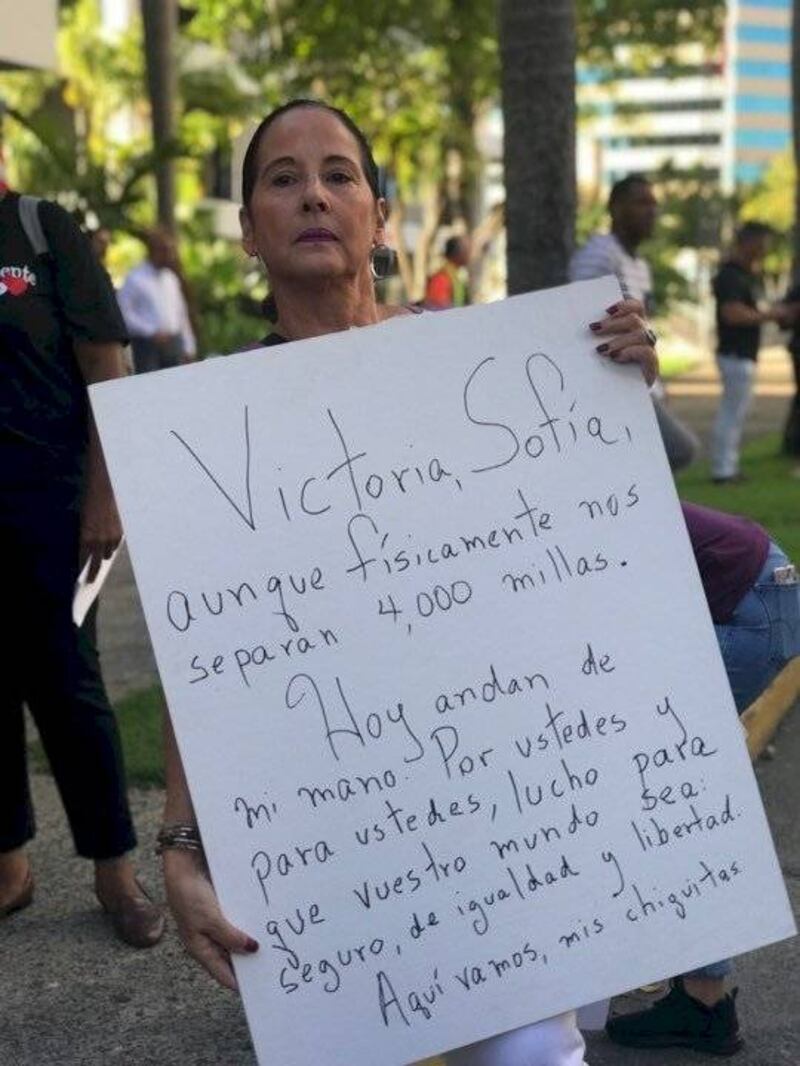 Victoria, Sofía,
aunque físicamente nos
separan 4,000 millas.
Hoy andan de
mi mano. Por ustedes y
para ustedes, lucho para
que vuestro mundo sea:
seguro, de igualdad y libertad.
Aquí vamos, mis chiquitas